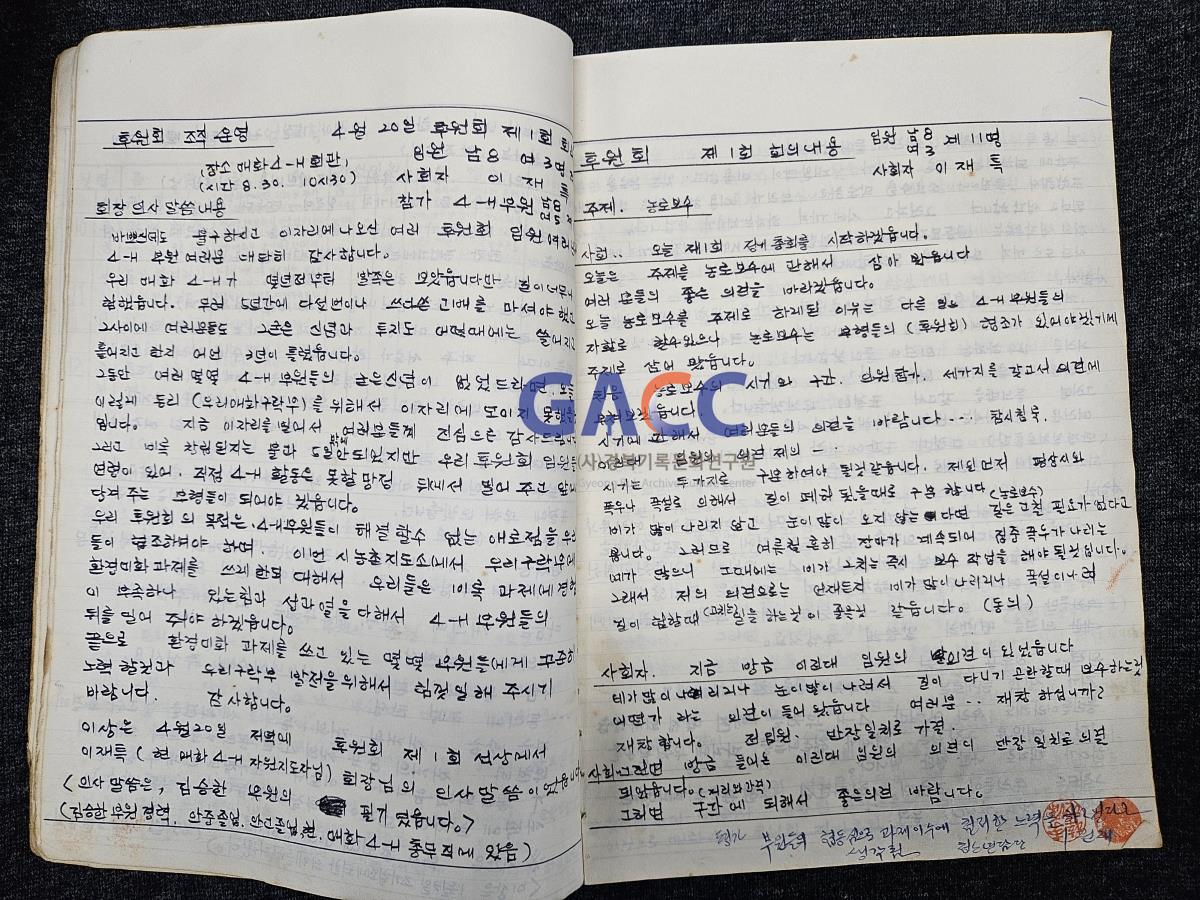 후원회 조직 운영 4월 20일 후원회 제1회
(장소 매화4-H회관) 임원 남8 여3명
(시간 8.30. 10시30) 사회자 이재특
참가 4-H부원 남8 여5
회장 인사 말씀 내용
바쁘신데도 불구하시고 이자리에 나오신 여러 후원회 임원여러분
4-H 부원 여러분 대단히 감사합니다.
우리 매화 4-H가 몇년전부터 발족은 보았읍니다만 길이너무나
험했읍니다. 무려 5년간에 다섯번이나 쓰디쓴 고배를 마셔야 했고
그사이에 여러분들도 굳은 신념과 투지도 어떤때에는 쓸어지고
틀어지고 한지 어언 3년이 흘렀읍니다.
그동안 여러 몇몇 4-H 부원들의 굳은신념이 없었드라면
이렇게 동리 (우리매화구락부)를 위해서 이자리에 모이지 못했을
입니다. 지금 이자리를 빌어서 여러분들께 진심으로 감사드립니다
그리고 비록 창립된지는 불과 5일밖에 안되었지만 우리 후원회 임원들
연령이 있어 직접 4-H 활동은 못할망정 뒤에서 밀어 주고 앞에
당겨 주는 부형들이 되어야 겠읍니다.
우리 후원회의 목적은 4-H부원들이 해결 할수 없는 애로점을 우리
들이 협조하여야 하며. 이번 시농촌지도소에서 우리구락부에
환경미화 과제를 쓰게 한데 대해서 우리들은 비록 과제에 경험
이 부족하나 있는힘과 성과열을 다해서 4-H 부원들의
뒤를 밀어 주어야 하겠읍니다.
끝으로 환경미화 과제를 쓰고 있는 몇몇 부원들에게 꾸준히
노력 할것과 우리구락부 발전을위해서 힘껏일해 주시기
바랍니다. 감사합니다.
이상은 4월20일 저녁에 후원회 제1회 석상에서
이재특 (현 매화 4-H 자원지도자님) 회장님의 인사말씀이었읍니다
<인사말씀은, 김승한 부원의 필기 였읍니다.>
(김승한 부원 경력. 안동출임. 현. 매화 4-H 총무직에 있음)
후원회 제1회 회의내용 임원 남8 여3 계 11명
사회자 이재특
주제. 농로보수
사회.. 오늘 제1회 정기총회를 시작하겠읍니다.
오늘은 주제를 농로보수에 관해서 잡아 봤읍니다
여러 분들의 좋은 의견을 바라겠읍니다.
오늘 농로보수를 주제로 하게된 이유는 다른 일은 4-H부원들의
자활로 할수있으나 농로보수는 부형들의 (후원회) 협조가 있어야겠기에
주제로 잡어 봤읍니다.
농로보수의 시기와 구간. 인원참가. 세가지를 갖고서 의견에
시기에 관해서 여러분들의 의견을 바람니다 … 잠시침묵.
이원대 임원의 의견 제의 -.
시기는 두가지로 구분하여야 될것같읍니다. 제일먼저 평상시와
폭우나 폭설로 의해서 길이 폐허 됬을때로 구분 합니다 (농로보수)
비가 많이 나리지 않고 눈이 많이 오지 않는다면 길은 고칠 필요가 없다고
봅니다. 그러므로 여름철 흔히 장마가 계속되어 집중 폭우가 나리는
때가 많으니 그때에는 비가 그치는 즉시 보수 작업을 해야 될것입니다.
그래서 저의 의견으로는 언제든지 비가 많이 나리거나 폭설이 나려
길이 험할때 (고치는) 일을 하는것이 좋을것 같읍니다. (동의)
사회자. 지금 방금 이원대 임원의 발의견이 있었읍니다
비가 많이 나리거나 눈이많이 나려서 길이 다니기 곤란할때 보수하는것
어떤가 라는 의견이 들어 왔읍니다 여러분.. 재창 하십니까?
재창 합니다. 전임원. 만장일치로 가결.
사회-그러면 방금 들어온 이원대 임원의 의견이 만장 일치로 의결
되었읍니다. (거리와간격)
그러면 구간에 대해서 좋은의견 바람니다.
평가 부원들의 협동심으로 과제이수에 컬러한 노력을
생각됨
GACC
(사)경북기록문화연구원